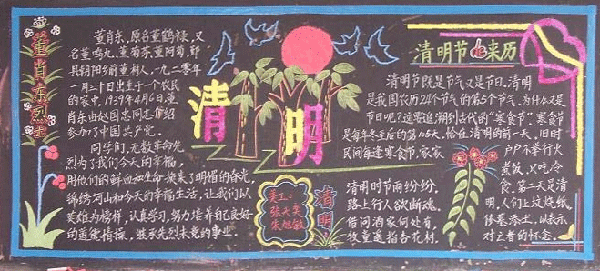 董肖东烈士
董肖东,原名董鹤候,又
名董鸣九、董菊荪、董阿菊,鄞
县朝阳乡前董村人,一九二零年
一月二十日出生于一个农民
的家中,1939年4月6日,董
肖东由赵国忠同志介绍
参加了中国共产党。
同学们,无数革命先
烈为了我们今天的幸福,
用他们的鲜血和生命,换来了明媚的春光,
锦绣河山和今天的幸福生活,让我们以
英雄为榜样,认真学习,努力培养自己良好
的道德情操,继承先烈未竟的事业。
清明
美工:
清明
清明节的来历
清明节既是节气又是节日,清明
是我国农历24个节气的第5个节气,为什么又是
节日呢?这要追溯到古代的“寒食节”,寒食节
是每年冬至后的第105天,恰在清明的前一天,旧时
民间每逢寒食节,家家
户户不举行火
煮饭,只吃冷
食,第二天是清
明,人们上坟烧纸
修墓添土,以表示
对亡者的怀念。
清明时节雨纷纷,
路上行人欲断魂。
借问酒家何处有,
牧童遥指杏花村。